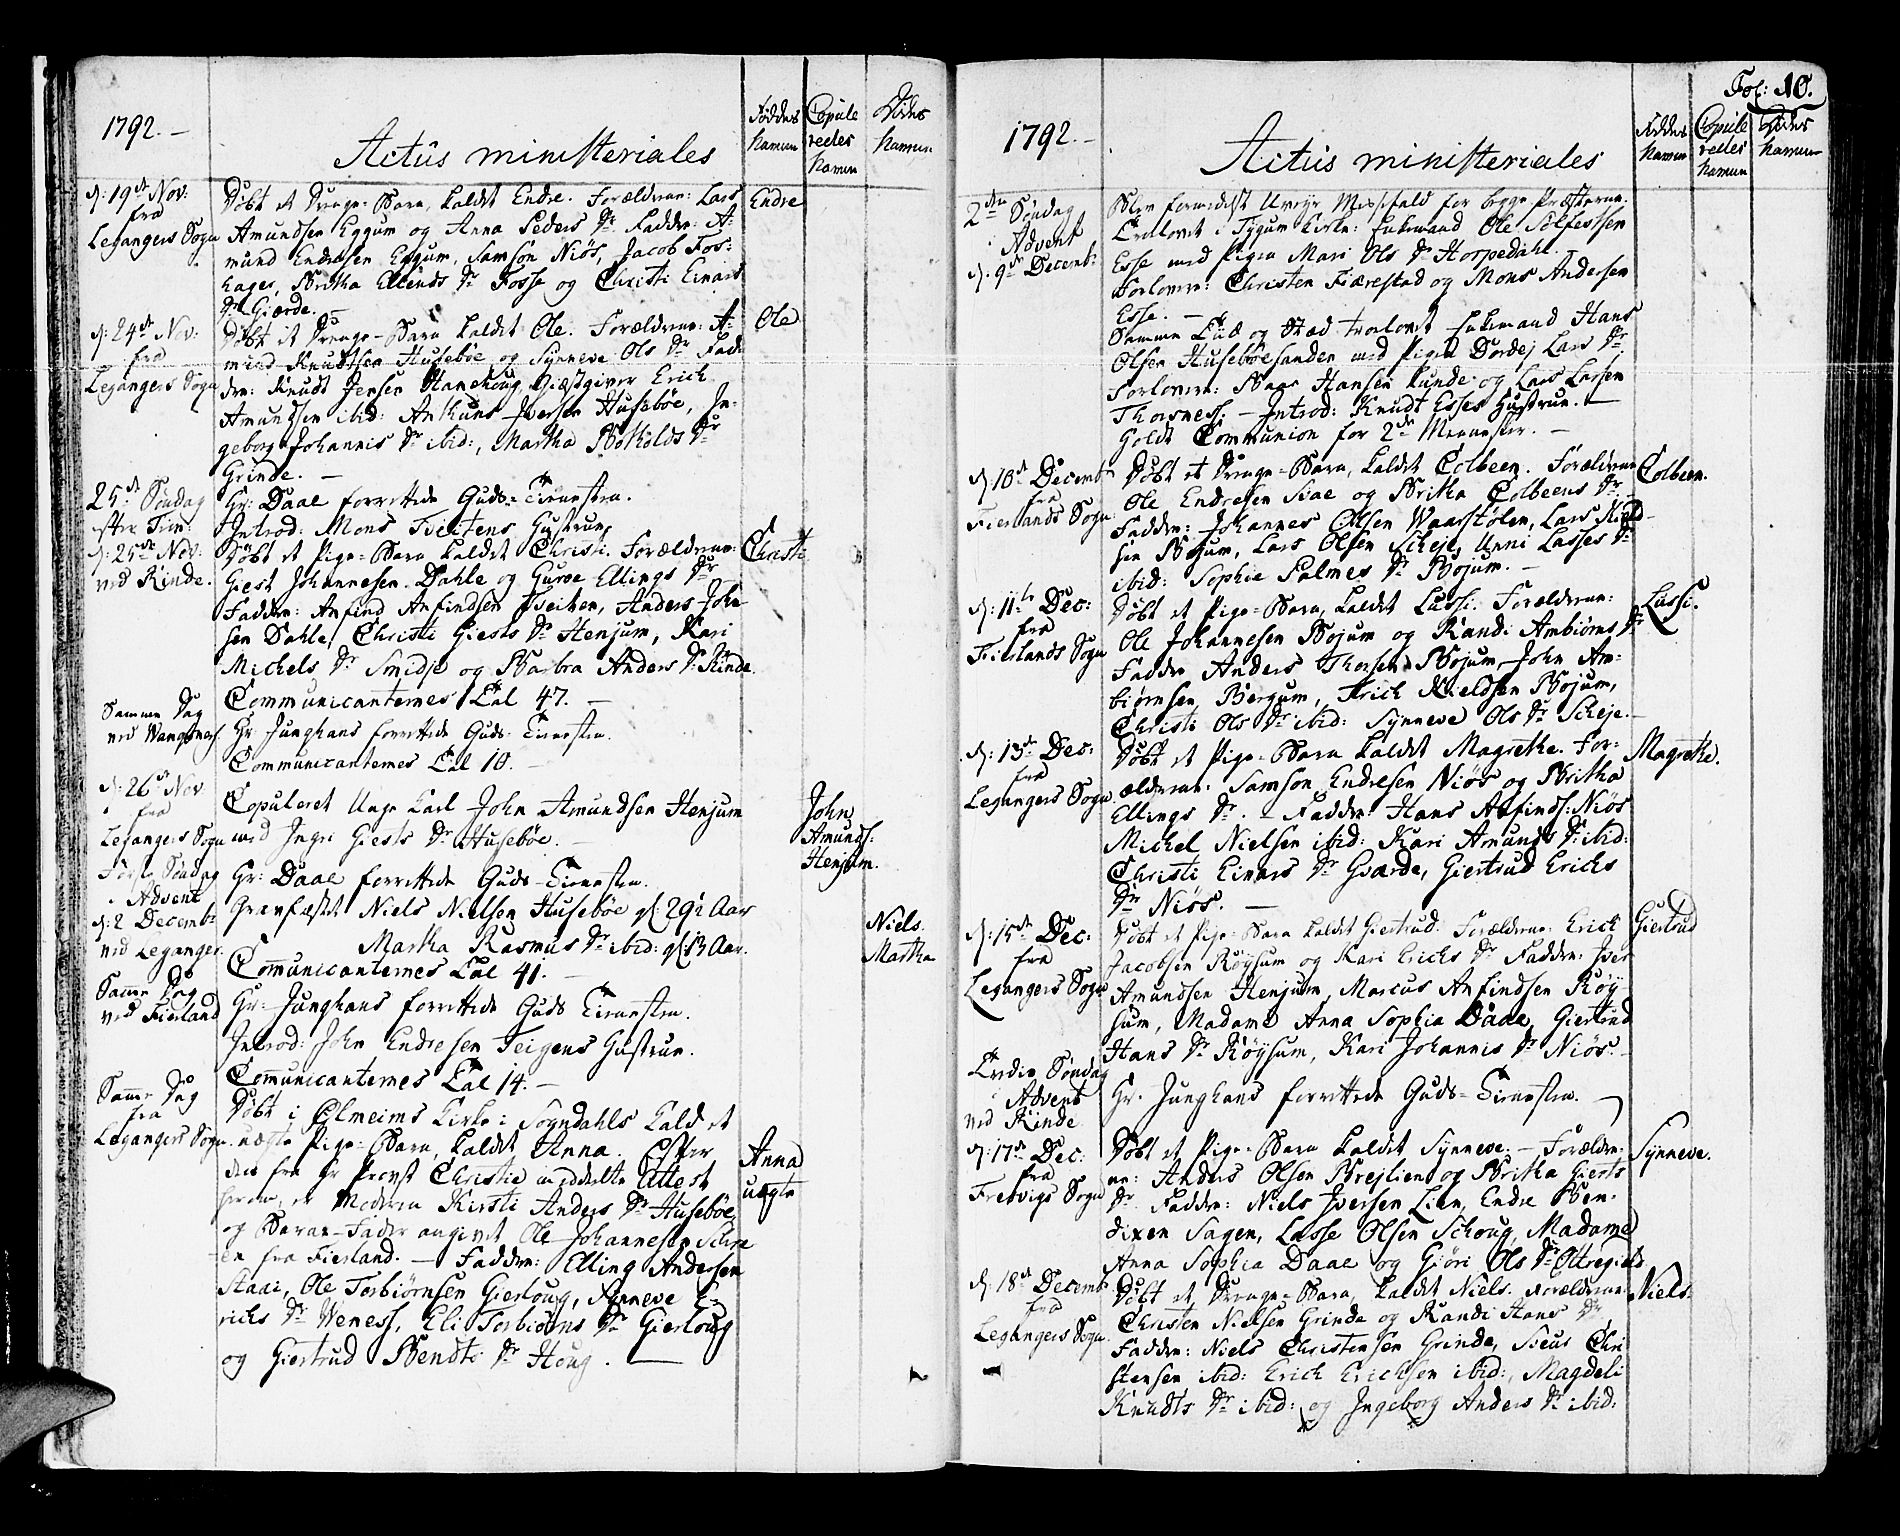 1792. —
Actus ministeriales
Føddes Navne
Copuleredes Navne
Dødes Navne
d: 19de Nov: fra Legangers Sogn
Døbt et Drenge-Barn kaldet Endre. Forældrene: Lars
Amundsen Eggum og Anna Peders Dr Faddere: A-
mund Endresen Eggum, Samson Niøs, Jacob Fos-
hagen, Britha Ellends Dr Fosse og Christi Einars
Dr Giærde. —
Endre
d: 24de Nov: fra Legangers Sogn
Døbt et Drenge-Barn kaldet Ole. Forældrene: A-
mund Knudtsen Husebøe og Synneve Ols Dr Fad-
dere: Knudt Jensen Hanehoug, Giæstgiver Erich
Amundsen ibid: Anthuns Iversen Husebøe, In-
geborg Johannis Dr ibid:, Martha Botholds Dr
Grinde. —
Ole
25de Søndag efter Trin: d: 25de Nov: ved Rinde.
Hr: Daae forrettede Guds-Tienesten.
Introd: Mons Tveitens Hustrue
Døbt et Pige-Barn kaldet Christi. Forældrene:
Giest Johannesen Dahle og Guroe Ellings Dr
Faddere: Anfind Anfindsen Tveiten, Anders John
sen Dahle, Christi Giests Dr Henjum, Kari
Michels Dr Smidse og Barbra Anders Dr Rinde.
Communicanternes Tal 47. —
Christi
Samme Dag ved Wangsnæs.
Hr Junghans forrettede Guds-Tienesten.
Communicanternes Tal 10. —
d: 26de Nov fra Legangers Sogn
Copuleret Unge Karl John Amundsen Henjum
med Ingri Giests Dr Husebøe. —
John Amunds: Henjum.
Første Søndag i Advent d: 2 Decemb: ved Leganger.
Hr: Daae forrettede Guds-Tienesten.
Gravfæstet Niels Nielsen Husebøe gl: 29½ Aar
Martha Rasmus Dr ibid: gl: 13 Aar.
Communicanternes Tal 41. —
Niels.
Martha
Samme Dag ved Fierland
Hr: Junghans forrettede Guds Tienesten.
Introd: John Endresen Teigens Hustrue.
Communicanternes Tal 14. —
Samme Dag fra Legangers Sogn.
Døbt i Olmeims Kirke i Sogndahls Kald et
uægte Pige-Barn, kaldet Anna. Efter
den fra Hr Provst Christie meddelte Attest
herom, er Moderen Kirsti Anders Dr Husebøe,
og Barne-Fader angivet Ole Johannesen
fra Fierland. — Faddere: Elling Andersen
Staai, Ole Torbiørnsen Gierloug, Synneve E-
richs Dr Weness, Eli Torbiørns Dr Gierloug
og Giertrud Bendts Dr Houg. —
Anna uægte
Fol: 10.
1792. —
Actus ministeriales
Føddes Navne
Copuleredes Navne
Dødes Navne
2den Søndag i Advent d: 9de Decemb:
Blev formedelst Uveyr Messefald for begge Præsterne.
Trolovet i Tygum Kirke: Enkemand Ole Solfessen
Esse med Pigen Mari Ols Dr Hoppedahl.
Forlovere: Christen Fiærestad og Mons Andersen
Esse. —
Samme Tid og Sted trolovet Enkemand Hans
Olsen Husebøesanden med Pigen Dordej Lars Dr
Forlovere: Baar Hansen Lunde og Lars Larsen
Thorsness. — Introd: Knudt Esses Hustrue. —
Holdt Communion for 2de Mennesker. —
d: 10de Decemb: fra Fierlands Sogn
Døbt et Drenge-Barn, kaldet Colbeen. Forældrene
Ole Endresen Siae og Britha Colbeens Dr —
Faddere: Johannes Olsen Waarstølen, Lars Kield-
sen Bojum, Lars Olsen Scheje, Unni Lasses Dr
ibid: Sophie Palmes Dr Bojum. —
Colbeen.
d: 11te Dec: fra Fierlands Sogn
Døbt et Pige-Barn, kaldet Lussi. Forældrene:
Ole Johannesen Bojum og Randi Ambiørns Dr
Faddere Anders Thorsen Bojum, John Am-
biørnsen Bergum, Erich Kieldsen Bojum,
Christi Ols Dr ibid: Synneve Ols Dr Scheje. —
Lussi.
d: 13de Dec: fra Legangers Sogn
Døbt et Pige-Barn kaldet Magrethe. For-
ældrene: Samson Endresen Niøs og Britha
Ellings Dr. — Faddere: Hans Anfinds: Niøs
Michel Nielsen ibid: Kari Amunds Dr ibid:
Christi Einars Dr Giærde, Giertrud Erichs
Dr Niøs. —
Magrethe.
d: 15de Dec: fra Legangers Sogn
Døbt et Pige-Barn kaldet Giertrud. Forældrene: Erich
Jacobsen Røysum og Kari Erichs Dr Faddere: Iver
Amundsen Henjum, Marcus Anfindsen Røy-
sum, Madame Anna Sophia Daae, Giertrud
Hans Dr Røysum, Kari Johannis Dr Niøs. —
Giertrud
Tredie Søndag i Advent ved Rinde
Hr. Junghans forrettede Guds-Tienesten. —
d: 17de Dec: fra Fretvigs Sogn
Døbt et Pige-Barn kaldet Synneve. — Forældre-
ne: Anders Olsen Brejlien og Britha Giests
Dr Faddere: Niels Iversen Lien, Endre Ben-
dixen Sagen, Lasse Olsen Schoug, Madame
Anna Sophia Daae og Giøri Ols Dr Ottregield
Synneve.
d: 18de Decemb: fra Legangers Sogn.
Døbt et Drenge-Barn, kaldet Niels. Forældrene:
Christen Nielsen Grinde og Randi Hans Dr
Faddere: Niels Christensen Grinde, Sieus Chri
stensen ibid: Erich Erichsen ibid:, Magdeli
Knudts Dr ibid: og Ingeborg Anders Dr ibid:
Niels.